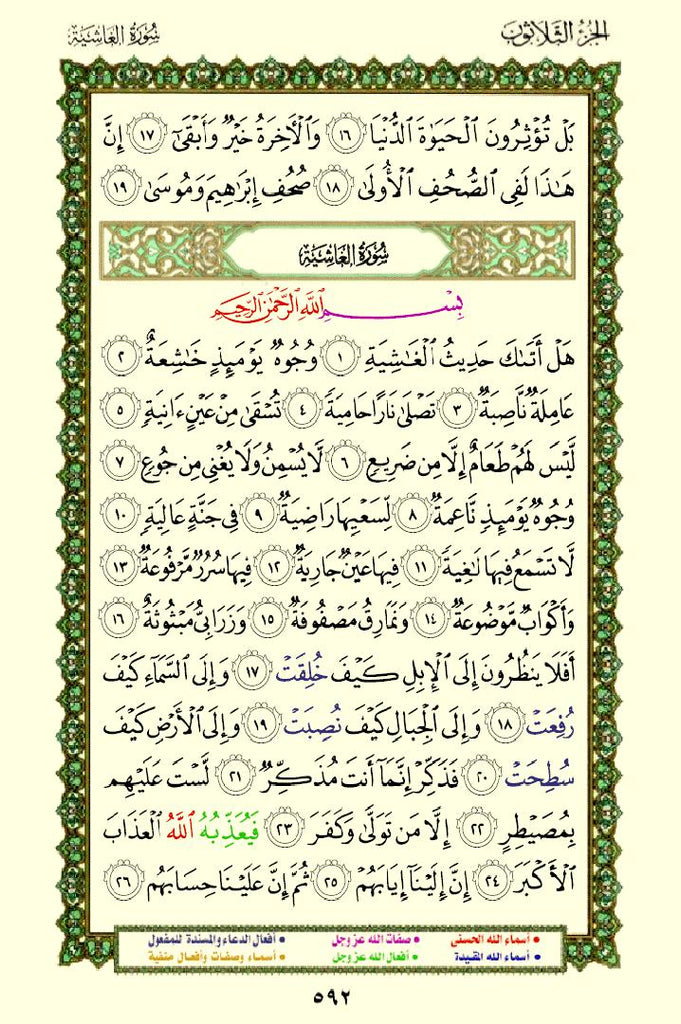 الجزء الثلاثون
سورة الغاشية
بَلْ تُؤْثِرُونَ الْحَيَوٰةَ الدُّنْيَا ١٦ وَالْأَخِرَةُ خَيْرٌ وَأَبْقَىٰٓ ١٧ إِنَّ
هَٰذَا لَفِى الصُّحُفِ الْأُولَىٰ ١٨ صُحُفِ إِبْرَٰهِيمَ وَمُوسَىٰ ١٩
سُورَةُ الغَاشِيَة
بِسْمِ اللَّهِ الرَّحْمَٰنِ الرَّحِيمِ
هَلْ أَتَىٰكَ حَدِيثُ الْغَٰشِيَةِ ١ وُجُوهٌ يَوْمَئِذٍ خَٰشِعَةٌ ٢
عَامِلَةٌ نَّاصِبَةٌ ٣ تَصْلَىٰ نَارًا حَامِيَةً ٤ تُسْقَىٰ مِنْ عَيْنٍ ءَانِيَةٍ ٥
لَّيْسَ لَهُمْ طَعَامٌ إِلَّا مِن ضَرِيعٍ ٦ لَّا يُسْمِنُ وَلَا يُغْنِى مِن جُوعٍ ٧
وُجُوهٌ يَوْمَئِذٍ نَّاعِمَةٌ ٨ لِّسَعْيِهَا رَاضِيَةٌ ٩ فِى جَنَّةٍ عَالِيَةٍ ١٠
لَّا تَسْمَعُ فِيهَا لَٰغِيَةً ١١ فِيهَا عَيْنٌ جَارِيَةٌ ١٢ فِيهَا سُرُرٌ مَّرْفُوعَةٌ ١٣
وَأَكْوَابٌ مَّوْضُوعَةٌ ١٤ وَنَمَارِقُ مَصْفُوفَةٌ ١٥ وَزَرَابِىُّ مَبْثُوثَةٌ ١٦
أَفَلَا يَنظُرُونَ إِلَى الْإِبِلِ كَيْفَ خُلِقَتْ ١٧ وَإِلَى السَّمَآءِ كَيْفَ
رُفِعَتْ ١٨ وَإِلَى الْجِبَالِ كَيْفَ نُصِبَتْ ١٩ وَإِلَى الْأَرْضِ كَيْفَ
سُطِحَتْ ٢٠ فَذَكِّرْ إِنَّمَآ أَنتَ مُذَكِّرٌ ٢١ لَّسْتَ عَلَيْهِم
بِمُصَيْطِرٍ ٢٢ إِلَّا مَن تَوَلَّىٰ وَكَفَرَ ٢٣ فَيُعَذِّبُهُ اللَّهُ الْعَذَابَ
الْأَكْبَرَ ٢٤ إِنَّ إِلَيْنَآ إِيَابَهُمْ ٢٥ ثُمَّ إِنَّ عَلَيْنَا حِسَابَهُم ٢٦
• أسماء الله الحسنى • صفات الله عز وجل • أفعال الدعاء والمسندة للمفعول
• أسماء الله المقيدة • أفعال الله عز وجل • أسماء وصفات وأفعال منفية
٥٩٢